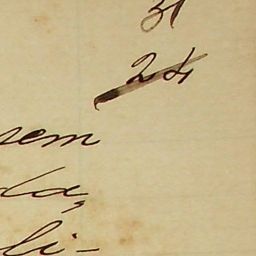 31
24
sem
da,
li-